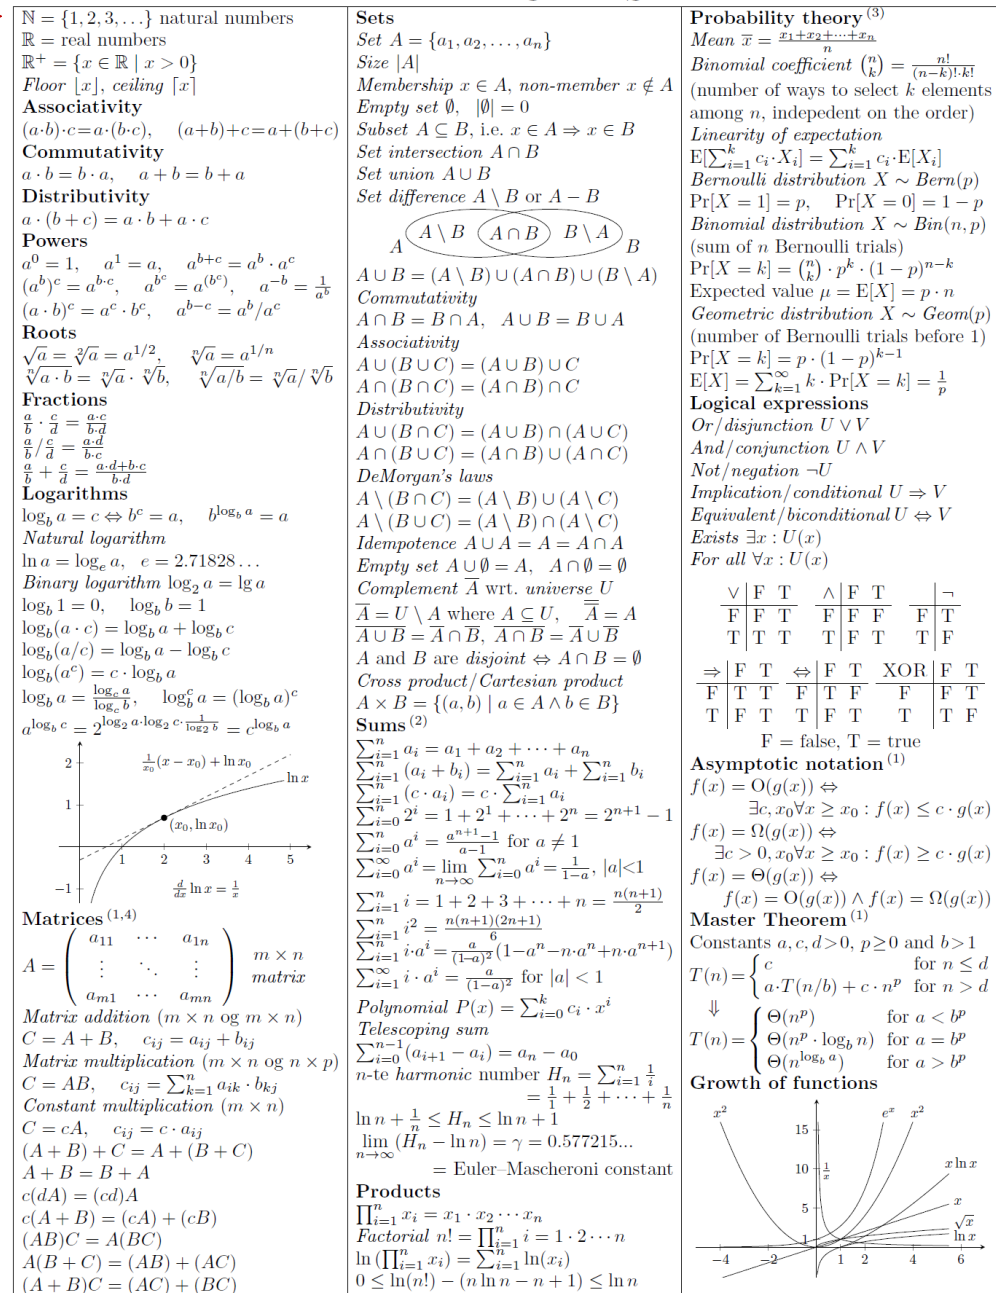 ℕ = {1, 2, 3, …} natural numbers
ℝ = real numbers
ℝ⁺ = {x ∈ ℝ | x > 0}
Floor ⌊x⌋, ceiling ⌈x⌉
Associativity
(a·b)·c=a·(b·c), (a+b)+c=a+(b+c)
Commutativity
a · b = b · a, a + b = b + a
Distributivity
a · (b + c) = a · b + a · c
Powers
a^0 = 1, a^1 = a, a^{b+c} = a^b · a^c
(a^b)^c = a^{b·c}, a^{b^c} = a^{(b^c)}, a^{−b} = 1/a^b
(a · b)^c = a^c · b^c, a^{b−c} = a^b/a^c
Roots
√a = ²√a = a^{1/2}, ⁿ√a = a^{1/n}
ⁿ√(a · b) = ⁿ√a · ⁿ√b, ⁿ√(a/b) = ⁿ√a / ⁿ√b
Fractions
a/b · c/d = (a·c)/(b·d)
a/b / c/d = (a·d)/(b·c)
a/b + c/d = (a·d+b·c)/(b·d)
Logarithms
log_b a = c ⇔ b^c = a, b^{log_b a} = a
Natural logarithm
ln a = log_e a, e = 2.71828 …
Binary logarithm log_2 a = lg a
log_b 1 = 0, log_b b = 1
log_b(a · c) = log_b a + log_b c
log_b(a/c) = log_b a − log_b c
log_b(a^c) = c · log_b a
log_b a = log_c a / log_c b, log_b^c a = (log_b a)^c
a^{log_b c} = 2^{log_2 a·log_2 c·1/log_2 b} = c^{log_b a}
2
1/x_0 (x − x_0) + ln x_0
ln x
1
(x_0, ln x_0)
1 2 3 4 5
−1
d/dx ln x = 1/x
Matrices (1,4)
A = ( a_11 ⋯ a_1n
⋮ ⋱ ⋮
a_m1 ⋯ a_mn ) m × n matrix
Matrix addition (m × n og m × n)
C = A + B, c_ij = a_ij + b_ij
Matrix multiplication (m × n og n × p)
C = AB, c_ij = ∑_{k=1}^n a_ik · b_kj
Constant multiplication (m × n)
C = cA, c_ij = c · a_ij
(A + B) + C = A + (B + C)
A + B = B + A
c(dA) = (cd)A
c(A + B) = (cA) + (cB)
(AB)C = A(BC)
A(B + C) = (AB) + (AC)
(A + B)C = (AC) + (BC)
Sets
Set A = {a_1, a_2, …, a_n}
Size |A|
Membership x ∈ A, non-member x ∉ A
Empty set ∅, |∅| = 0
Subset A ⊆ B, i.e. x ∈ A ⇒ x ∈ B
Set intersection A ∩ B
Set union A ∪ B
Set difference A \ B or A − B
A A \ B A ∩ B B \ A B
A ∪ B = (A \ B) ∪ (A ∩ B) ∪ (B \ A)
Commutativity
A ∩ B = B ∩ A, A ∪ B = B ∪ A
Associativity
A ∪ (B ∪ C) = (A ∪ B) ∪ C
A ∩ (B ∩ C) = (A ∩ B) ∩ C
Distributivity
A ∪ (B ∩ C) = (A ∪ B) ∩ (A ∪ C)
A ∩ (B ∪ C) = (A ∩ B) ∪ (A ∩ C)
DeMorgan's laws
A \ (B ∩ C) = (A \ B) ∪ (A \ C)
A \ (B ∪ C) = (A \ B) ∩ (A \ C)
Idempotence A ∪ A = A = A ∩ A
Empty set A ∪ ∅ = A, A ∩ ∅ = ∅
Complement A̅ wrt. universe U
A̅ = U \ A where A ⊆ U, A̿ = A
\overline{A ∪ B} = A̅ ∩ B̅, \overline{A ∩ B} = A̅ ∪ B̅
A and B are disjoint ⇔ A ∩ B = ∅
Cross product/Cartesian product
A × B = {(a, b) | a ∈ A ∧ b ∈ B}
Sums (2)
∑_{i=1}^n a_i = a_1 + a_2 + ⋯ + a_n
∑_{i=1}^n (a_i + b_i) = ∑_{i=1}^n a_i + ∑_{i=1}^n b_i
∑_{i=1}^n (c · a_i) = c · ∑_{i=1}^n a_i
∑_{i=0}^n 2^i = 1 + 2^1 + ⋯ + 2^n = 2^{n+1} − 1
∑_{i=0}^n a^i = (a^{n+1}−1)/(a−1) for a ≠ 1
∑_{i=0}^∞ a^i = lim_{n→∞} ∑_{i=0}^n a^i = 1/(1−a), |a|<1
∑_{i=1}^n i = 1 + 2 + 3 + ⋯ + n = n(n+1)/2
∑_{i=1}^n i^2 = n(n+1)(2n+1)/6
∑_{i=1}^n i·a^i = a/(1−a)^2 (1−a^n−n·a^n+n·a^{n+1})
∑_{i=1}^∞ i · a^i = a/(1−a)^2 for |a| < 1
Polynomial P(x) = ∑_{i=0}^k c_i · x^i
Telescoping sum
∑_{i=0}^{n−1} (a_{i+1} − a_i) = a_n − a_0
n-te harmonic number H_n = ∑_{i=1}^n 1/i
= 1/1 + 1/2 + ⋯ + 1/n
ln n + 1/n ≤ H_n ≤ ln n + 1
lim_{n→∞} (H_n − ln n) = γ = 0.577215...
= Euler–Mascheroni constant
Products
∏_{i=1}^n x_i = x_1 · x_2 ⋯ x_n
Factorial n! = ∏_{i=1}^n i = 1 · 2 ⋯ n
ln (∏_{i=1}^n x_i) = ∑_{i=1}^n ln(x_i)
0 ≤ ln(n!) − (n ln n − n + 1) ≤ ln n
Probability theory (3)
Mean x̅ = (x_1+x_2+⋯+x_n)/n
Binomial coefficient (n k) = n!/((n−k)!·k!)
(number of ways to select k elements
among n, indepedent on the order)
Linearity of expectation
E[∑_{i=1}^k c_i·X_i] = ∑_{i=1}^k c_i·E[X_i]
Bernoulli distribution X ∼ Bern(p)
Pr[X = 1] = p, Pr[X = 0] = 1 − p
Binomial distribution X ∼ Bin(n, p)
(sum of n Bernoulli trials)
Pr[X = k] = (n k) · p^k · (1 − p)^{n−k}
Expected value μ = E[X] = p · n
Geometric distribution X ∼ Geom(p)
(number of Bernoulli trials before 1)
Pr[X = k] = p · (1 − p)^{k−1}
E[X] = ∑_{k=1}^∞ k · Pr[X = k] = 1/p
Logical expressions
Or/disjunction U ∨ V
And/conjunction U ∧ V
Not/negation ¬U
Implication/conditional U ⇒ V
Equivalent/biconditional U ⇔ V
Exists ∃x : U(x)
For all ∀x : U(x)
∨ F T ∧ F T ¬
F F T F F F F T
T T T T F T T F
⇒ F T ⇔ F T XOR F T
F T T F T F F F T
T F T T F T T T F
F = false, T = true
Asymptotic notation (1)
f(x) = O(g(x)) ⇔
∃c, x_0 ∀x ≥ x_0 : f(x) ≤ c · g(x)
f(x) = Ω(g(x)) ⇔
∃c > 0, x_0 ∀x ≥ x_0 : f(x) ≥ c · g(x)
f(x) = Θ(g(x)) ⇔
f(x) = O(g(x)) ∧ f(x) = Ω(g(x))
Master Theorem (1)
Constants a, c, d>0, p≥0 and b>1
T(n) = { c for n ≤ d
a·T(n/b) + c · n^p for n > d
⇓
T(n) = { Θ(n^p) for a < b^p
Θ(n^p · log_b n) for a = b^p
Θ(n^{log_b a}) for a > b^p
Growth of functions
x^2 e^x x^2
15
10 1/x x ln x
5 x
√x
1 ln x
−4 −2 1 2 4 6